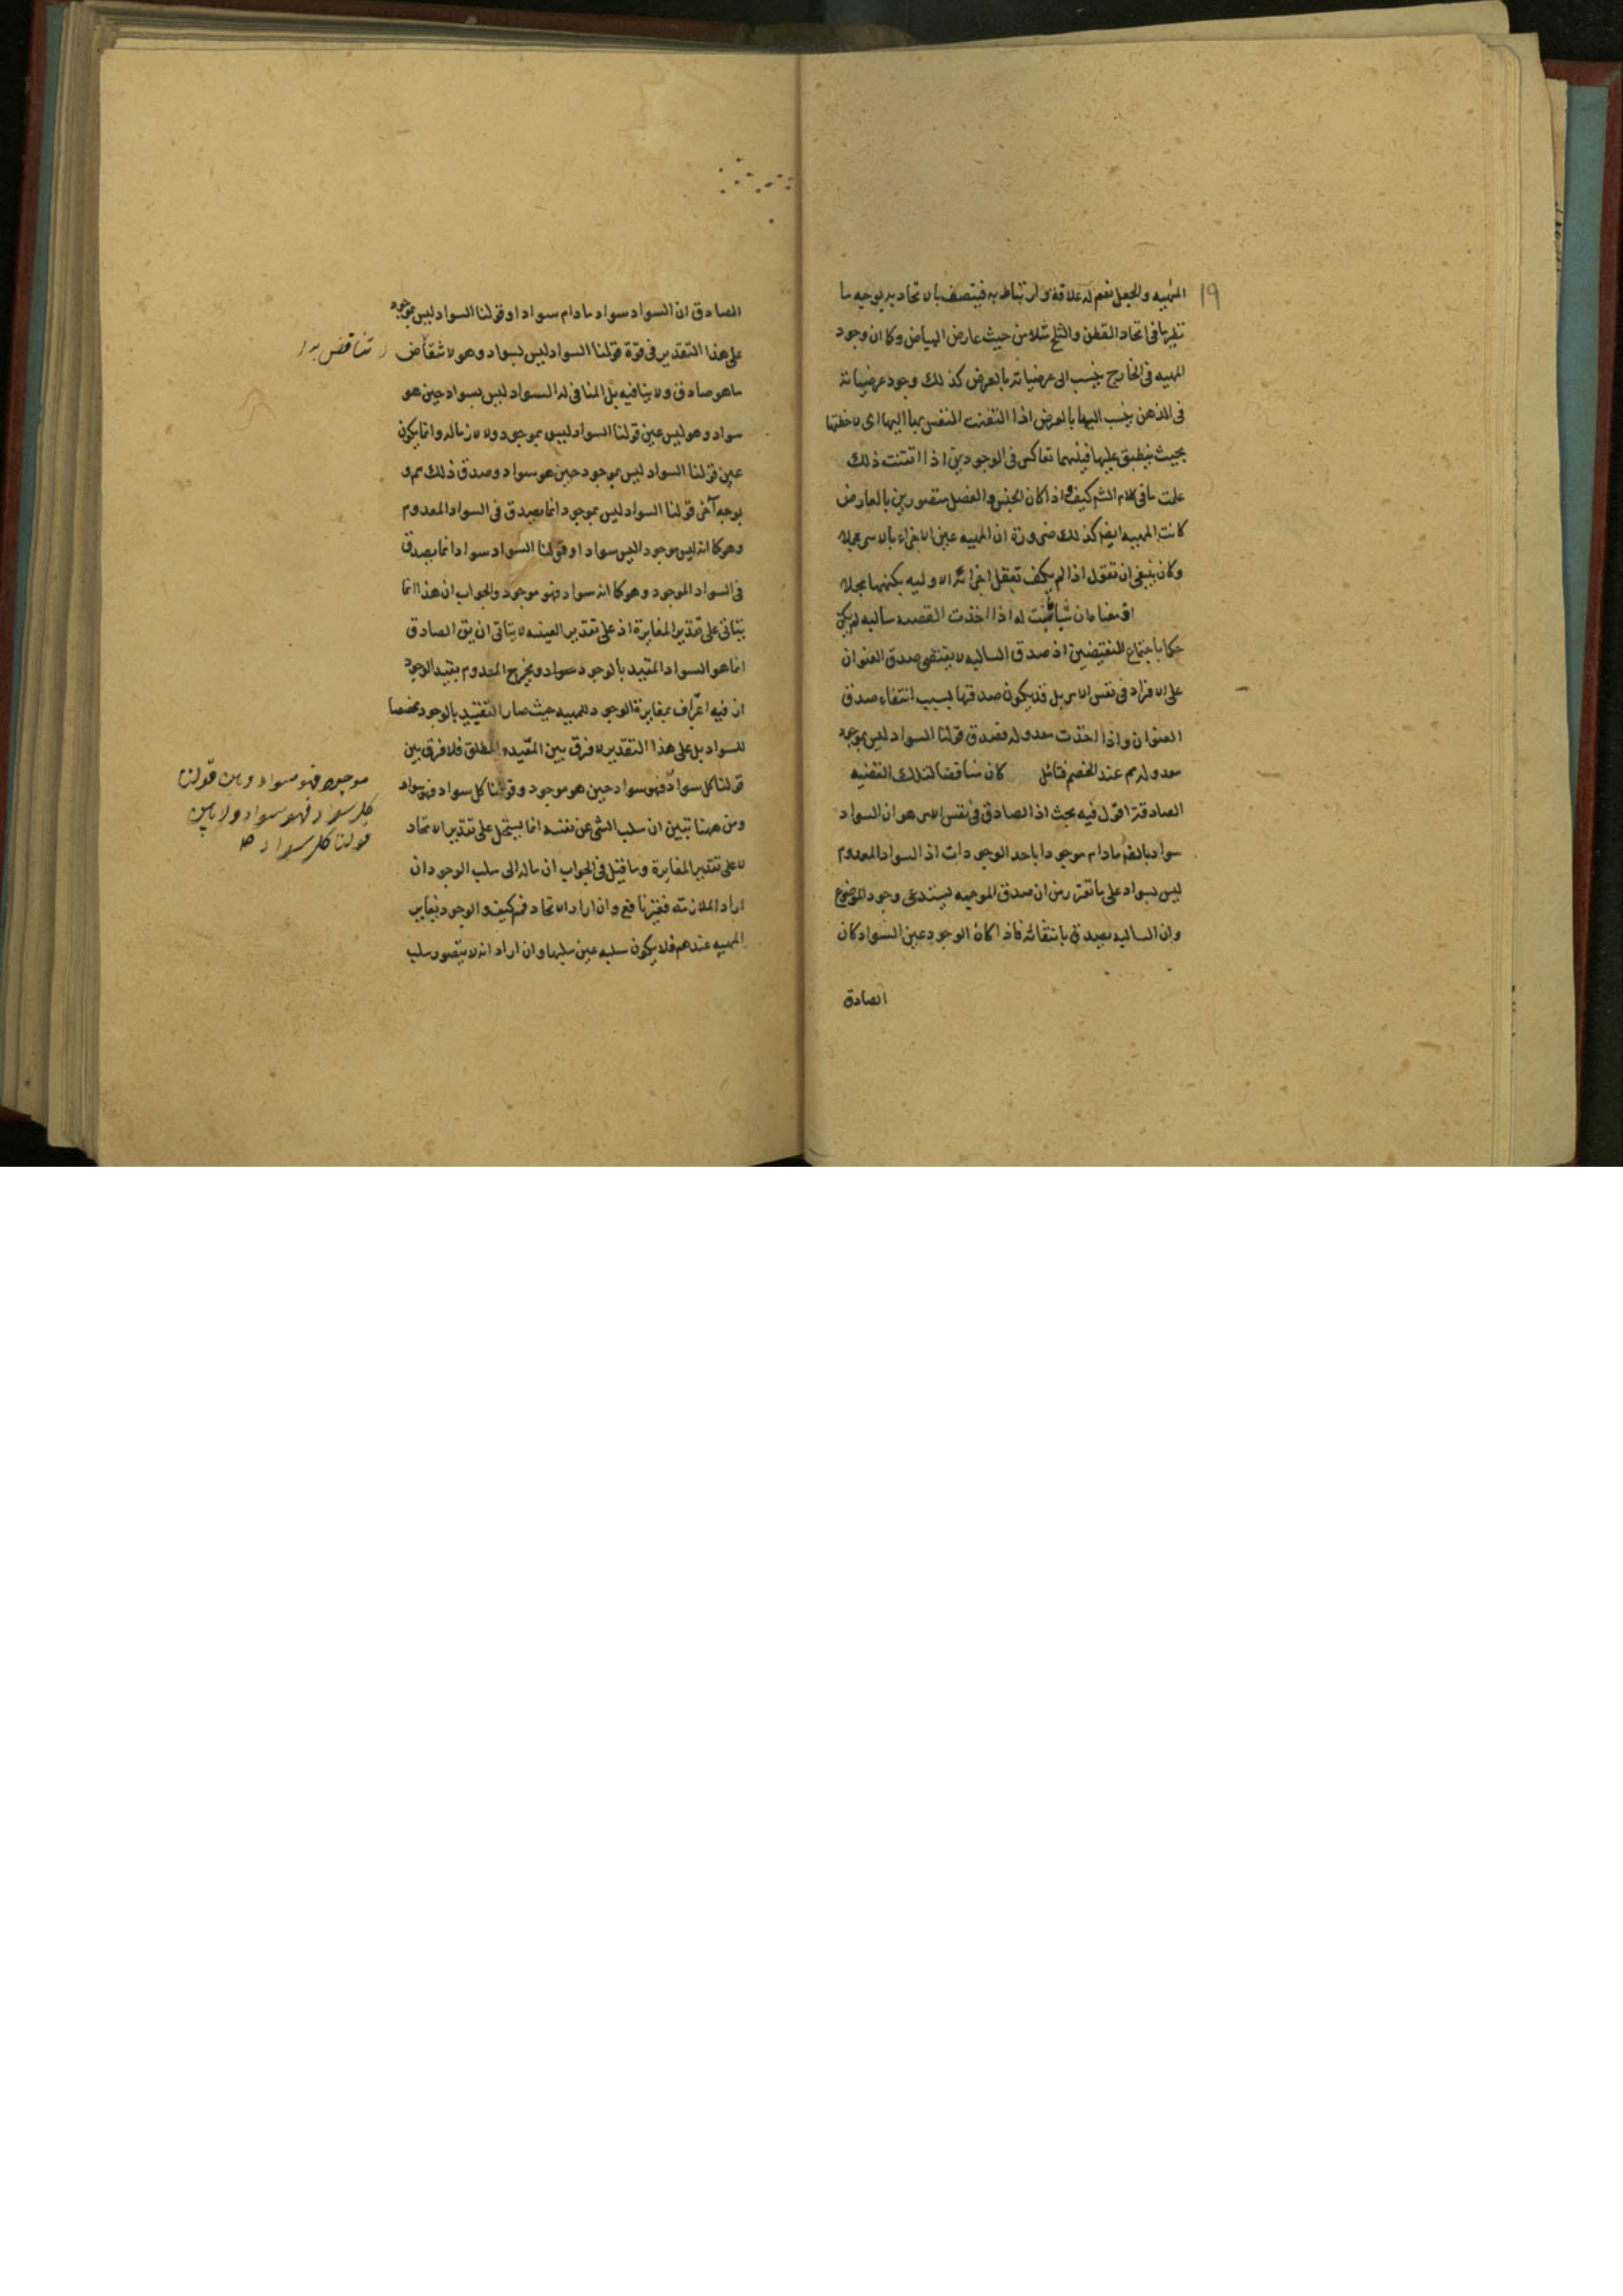 ١٩
المهيه والجعل نعم له علاقة وارتباط به فيتصف بالاتحاد به بوجه ما
نظير ما فى اتحاد القطن والثلج مثلا من حيث عارض البياض وكما ان وجود
المهيه فى الخارج ينسب الى عرضياته بالعرض كذلك وجود عرضياته
فى الذهن ينسب اليها بالعرض اذا التفتت النفس بها اليها اى لاحظتها
بحيث ينطبق عليها فبينهما تعاكس فى الوجودين اذا اتقنت ذلك
علمت ما فى كلام الشم كيف واذا كان الجنس والفصل متصورين بالعارض
كانت المهيه ايضا كذلك ضرورة ان المهيه عين الاجزاء بالاسر مجملا
وكان ينبغى ان تقول اذا لم يكف تعقل اجزائه الاوليه بكنهها مجملا
له اذا اخذت القضيه سالبه لم يكن
حكما باجتماع النقيضين اذ صدق السالبه لا يقتضى صدق العنوان
على الافراد فى نفس الامر بل قد يكون صدقها بسبب انتفاء صدق
العنوان واذا اخذت معدوله فصدق قولنا السواد ليس بموجود
معدوله مم عند الخصم فتامل كان مناقضا لتلك القضيه
الصادقة اقول فيه بحث اذ الصادق فى نفس الامر هو ان السواد
سواد بالضر مادام موجودا باحد الوجودات اذ السواد المعدوم
ليس بسواد على ما تقرر من ان صدق الموجبه يستدعى وجود الموضوع
وان السالبه تصدق بانتفائه فاذا كان الوجود عين السواد كان
الصادق
الصادق ان السواد سواد مادام سوادا وقولنا السواد ليس بموجود
على هذا التقدير فى قوة قولنا السواد ليس بسواد وهو لا يناقض
تناقض
ما هو صادق ولا ينافيه بل المنافى له السواد ليس بسواد حين هو
سواد وهو ليس عين قولنا السواد ليس بموجود ولا لازما له وانما يكون
عين قولنا السواد ليس بموجود حين هو سواد وصدق ذلك مم و
بوجه آخر قولنا السواد ليس بموجود انما يصدق فى السواد المعدوم
وهو كما انه ليس موجود اليس سوادا وقولنا السواد سواد انما يصدق
فى السواد الموجود وهو كما انه سواد فهو موجود والجواب ان هذا انما
يتاتى على تقدير المغايرة اذ على تقدير العينيه لا يتاتى ان يق الصادق
انما هو السواد المقيد بالوجود سواد ويخرج المعدوم بقيد الوجود
اذ فيه اعتراف بمغايرة الوجود للمهيه حيث صار التقييد بالوجود مخصصا
للسواد بل على هذا التقدير لا فرق بين المقيد والمطلق فلا فرق بين
قولنا كل سواد فهو سواد حين هو موجود وقولنا كل سواد فهو سواد
موجود فهو سواد وبين قولنا
كل سواد فهو سواد ولا بين
قولنا كل سواد
ومن ههنا تبين ان سلب الشى عن نفسه انما يستحيل على تقدير الاتحاد
لا على تقدير المغايرة وما قيل فى الجواب ان ماله الى سلب الوجود ان
اراد الملازمه فغير نافع وان اراد الاتحاد فمم كيف والوجود يغاير
المهيه عندهم فلا يكون سلبه عين سلبها وان اراد انه لا يتصور سلب